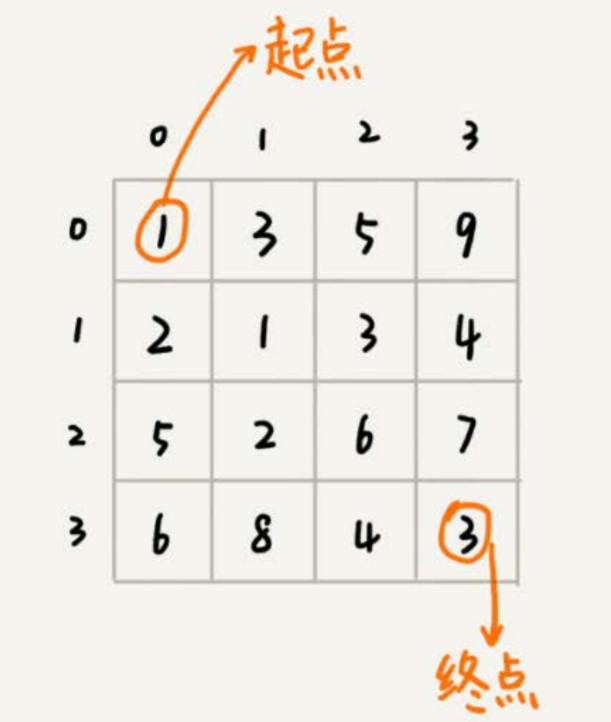 起点
0 1 2 3
0 1 3 5 9
1 2 1 3 4
2 5 2 6 7
3 6 8 4 3
终点